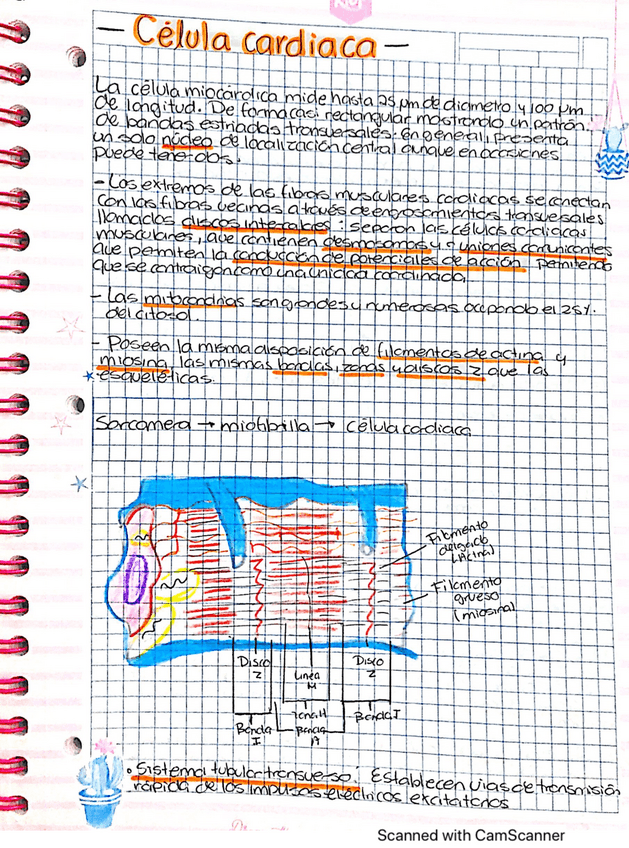 — Célula cardiaca —
La célula miocárdica mide hasta 25 μm de diametro y 100 μm
de longitud. De forma casi rectangular mostrando un patrón
de bandas estriadas transversales. En general, presenta
un solo núcleo de localización central aunque en ocasiones
puede tener dos.
- Los extremos de las fibras musculares cardiacas se conectan
con las fibras vecinas a través de engrosamientos transversales
llamados discos intercalares: separan las células cardiacas
musculares, que contienen desmosomas y uniones comunicantes
que permiten la conducción de potenciales de acción permitendo
que se contraigan como una unidad coordinada.
- Las mitocondrias son grandes y numerosas ocupando el 25%
del citosol.
- Poseen la misma disposición de filamentos de actina y
miosina, las mismas bandas, zonas y discos z que las
esqueléticas.
Sarcomera → miofibrilla → célula cardiaca
Filamento
delgado
(Actina)
Filamento
grueso
(miosina)
Disco
Z
Línea
M
Disco
Z
Zona H
Banda I
Banda
I
Banda
A
• Sistema tubular transverso: Establecen vias de transmisión
rápida de los impulsos eléctricos excitatorios
Scanned with CamScanner